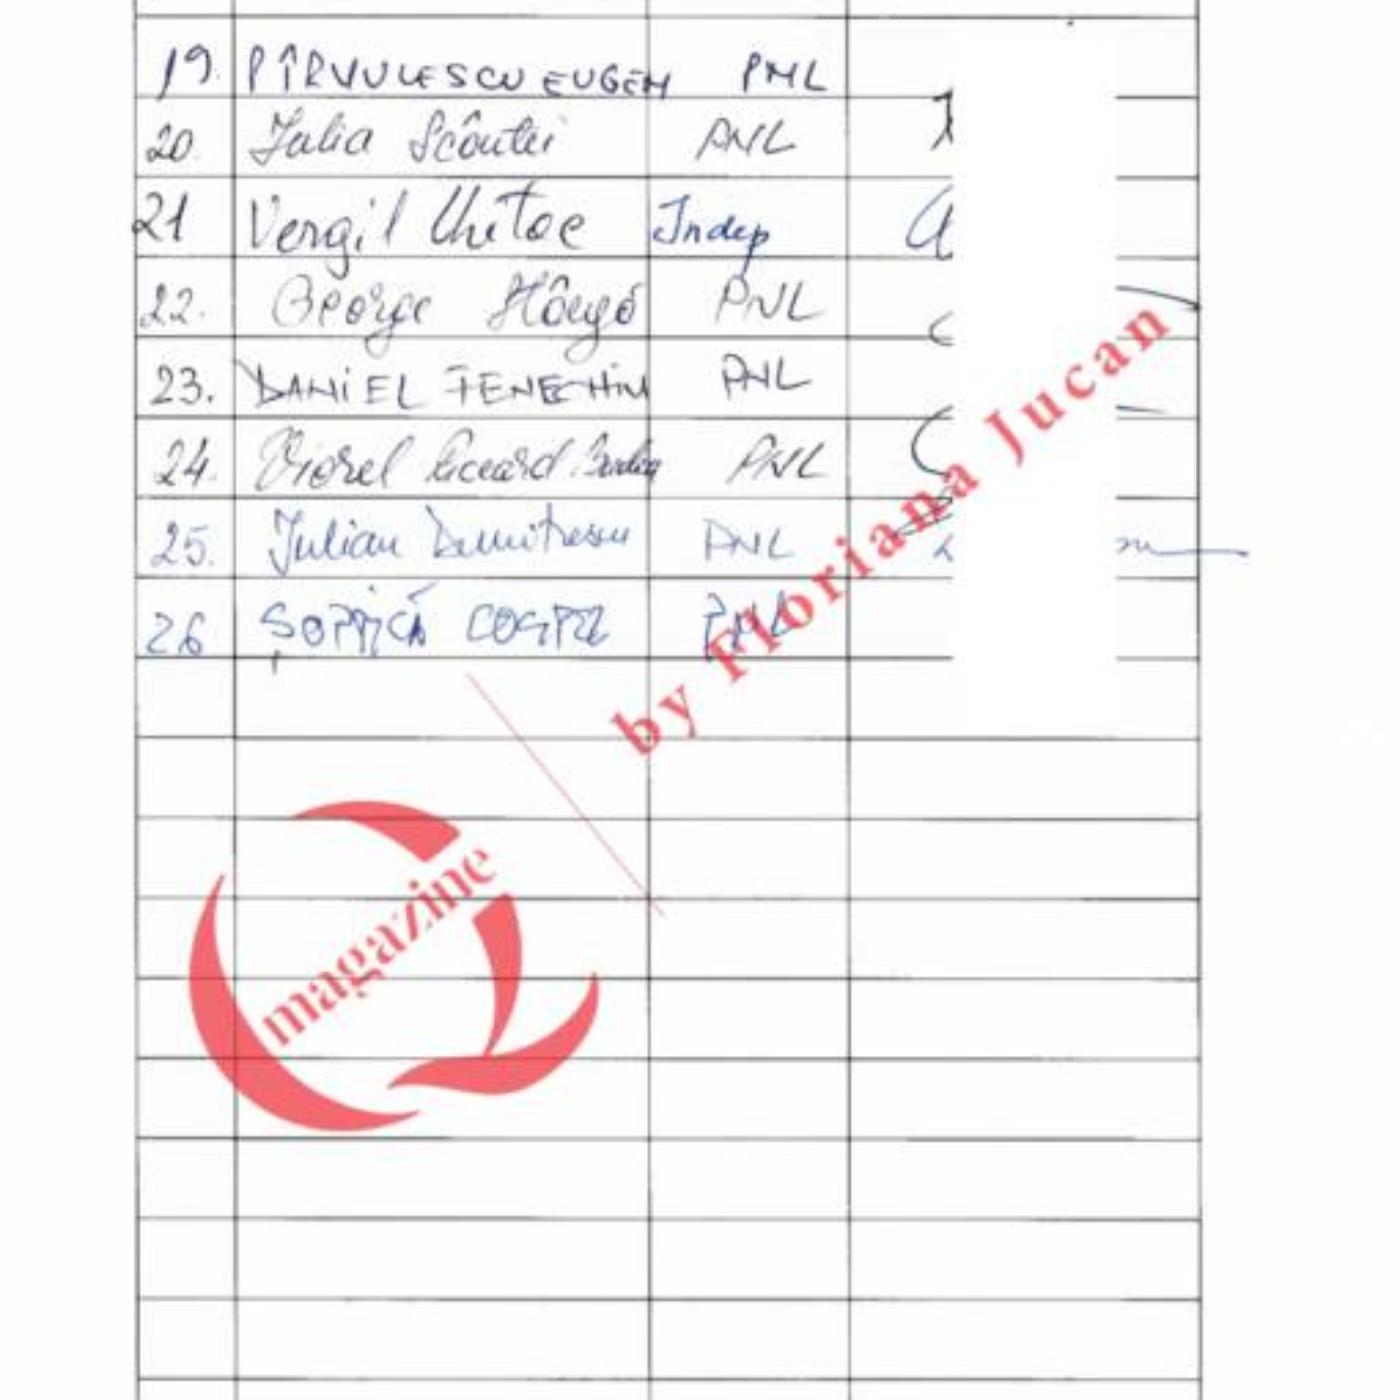 19. PÎRVULESCU EUGEN PNL
20. Iulia Scântei PNL
21 Vergil Chițac Indep
22. George Stângă PNL
23. DANIEL FENECHIU PNL
24. Viorel Badea PNL
25. Iulian Dumitrescu PNL
26 ȘOPTICĂ COSTEL PNL
by Floriana Jucan
magazine